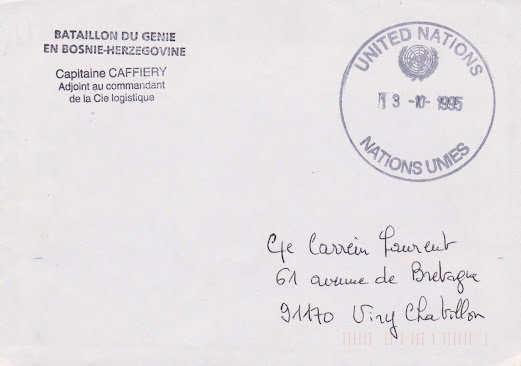 BATAILLON DU GENIE
EN BOSNIE-HERZEGOVINE
Capitaine CAFFIERY
Adjoint au commandant
de la Cie logistique
UNITED NATIONS
13 -10- 1995
NATIONS UNIES
Cje Carrein Laurent
61 avenue de Bretagne
91170 Viry Chatillon